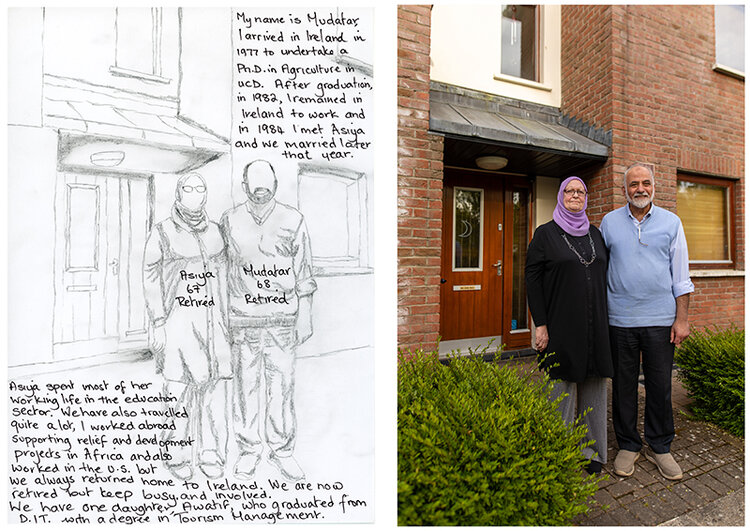 My name is Mudatar,
I arrived in Ireland in
1977 to undertake a
Ph.D. in Agriculture in
UCD. After graduation,
in 1982, I remained in
Ireland to work and
in 1984 I met Asiya
and we married later
that year.
Asiya
67
Retired
Mudatar
68
Retired
Asiya spent most of her
working life in the education
sector. We have also travelled
quite a lot, I worked abroad
supporting relief and development
projects in Africa and also
worked in the U.S. but
we always returned home to Ireland. We are now
retired but keep busy and involved.
We have one daughter, Awatif, who graduated from
D.I.T. with a degree in Tourism Management.